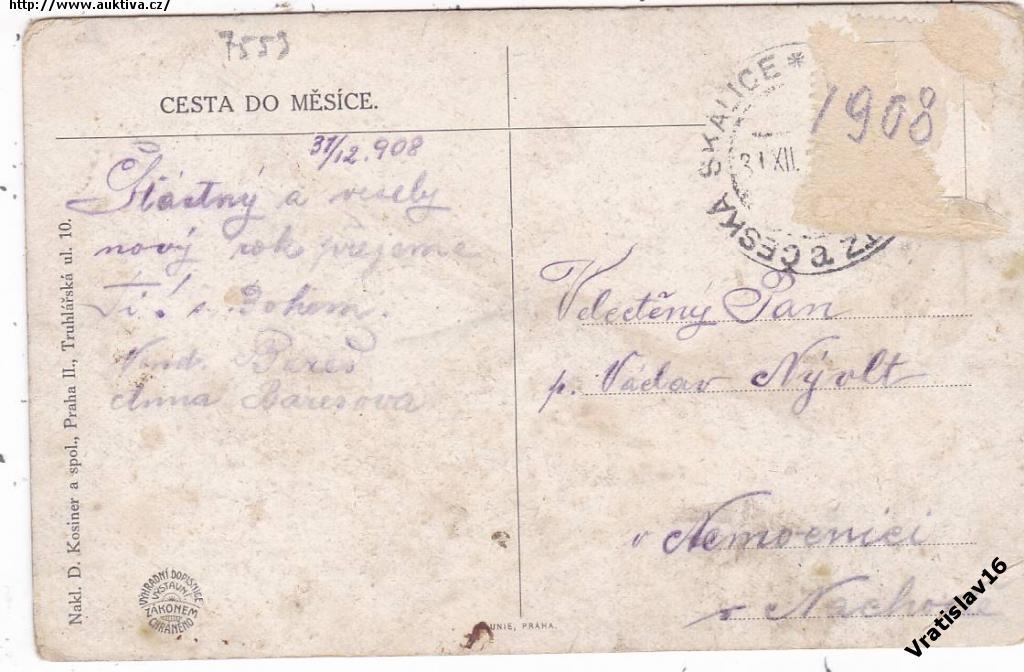 http://www.auktiva.cz/
7559
CESTA DO MĚSÍCE.
31/12. 908
Šťastný a veselý
nový rok přejeme
Ti! s Bohem.
Vend. Bareš
Anna Barešova
Nakl. D. Kosiner a spol., Praha II., Truhlářská ul. 10.
VÝHRADNÍ DOPISNICE
VÝSTAVNÍ
ZÁKONEM
CHRÁNĚNO
UNIE, PRAHA.
ČESKÁ SKALICE *
31 XII.
TZ
1908
Velectěný Pan
p. Václav Nývlt
v Nemocnici
v Náchodě
Vratislav16